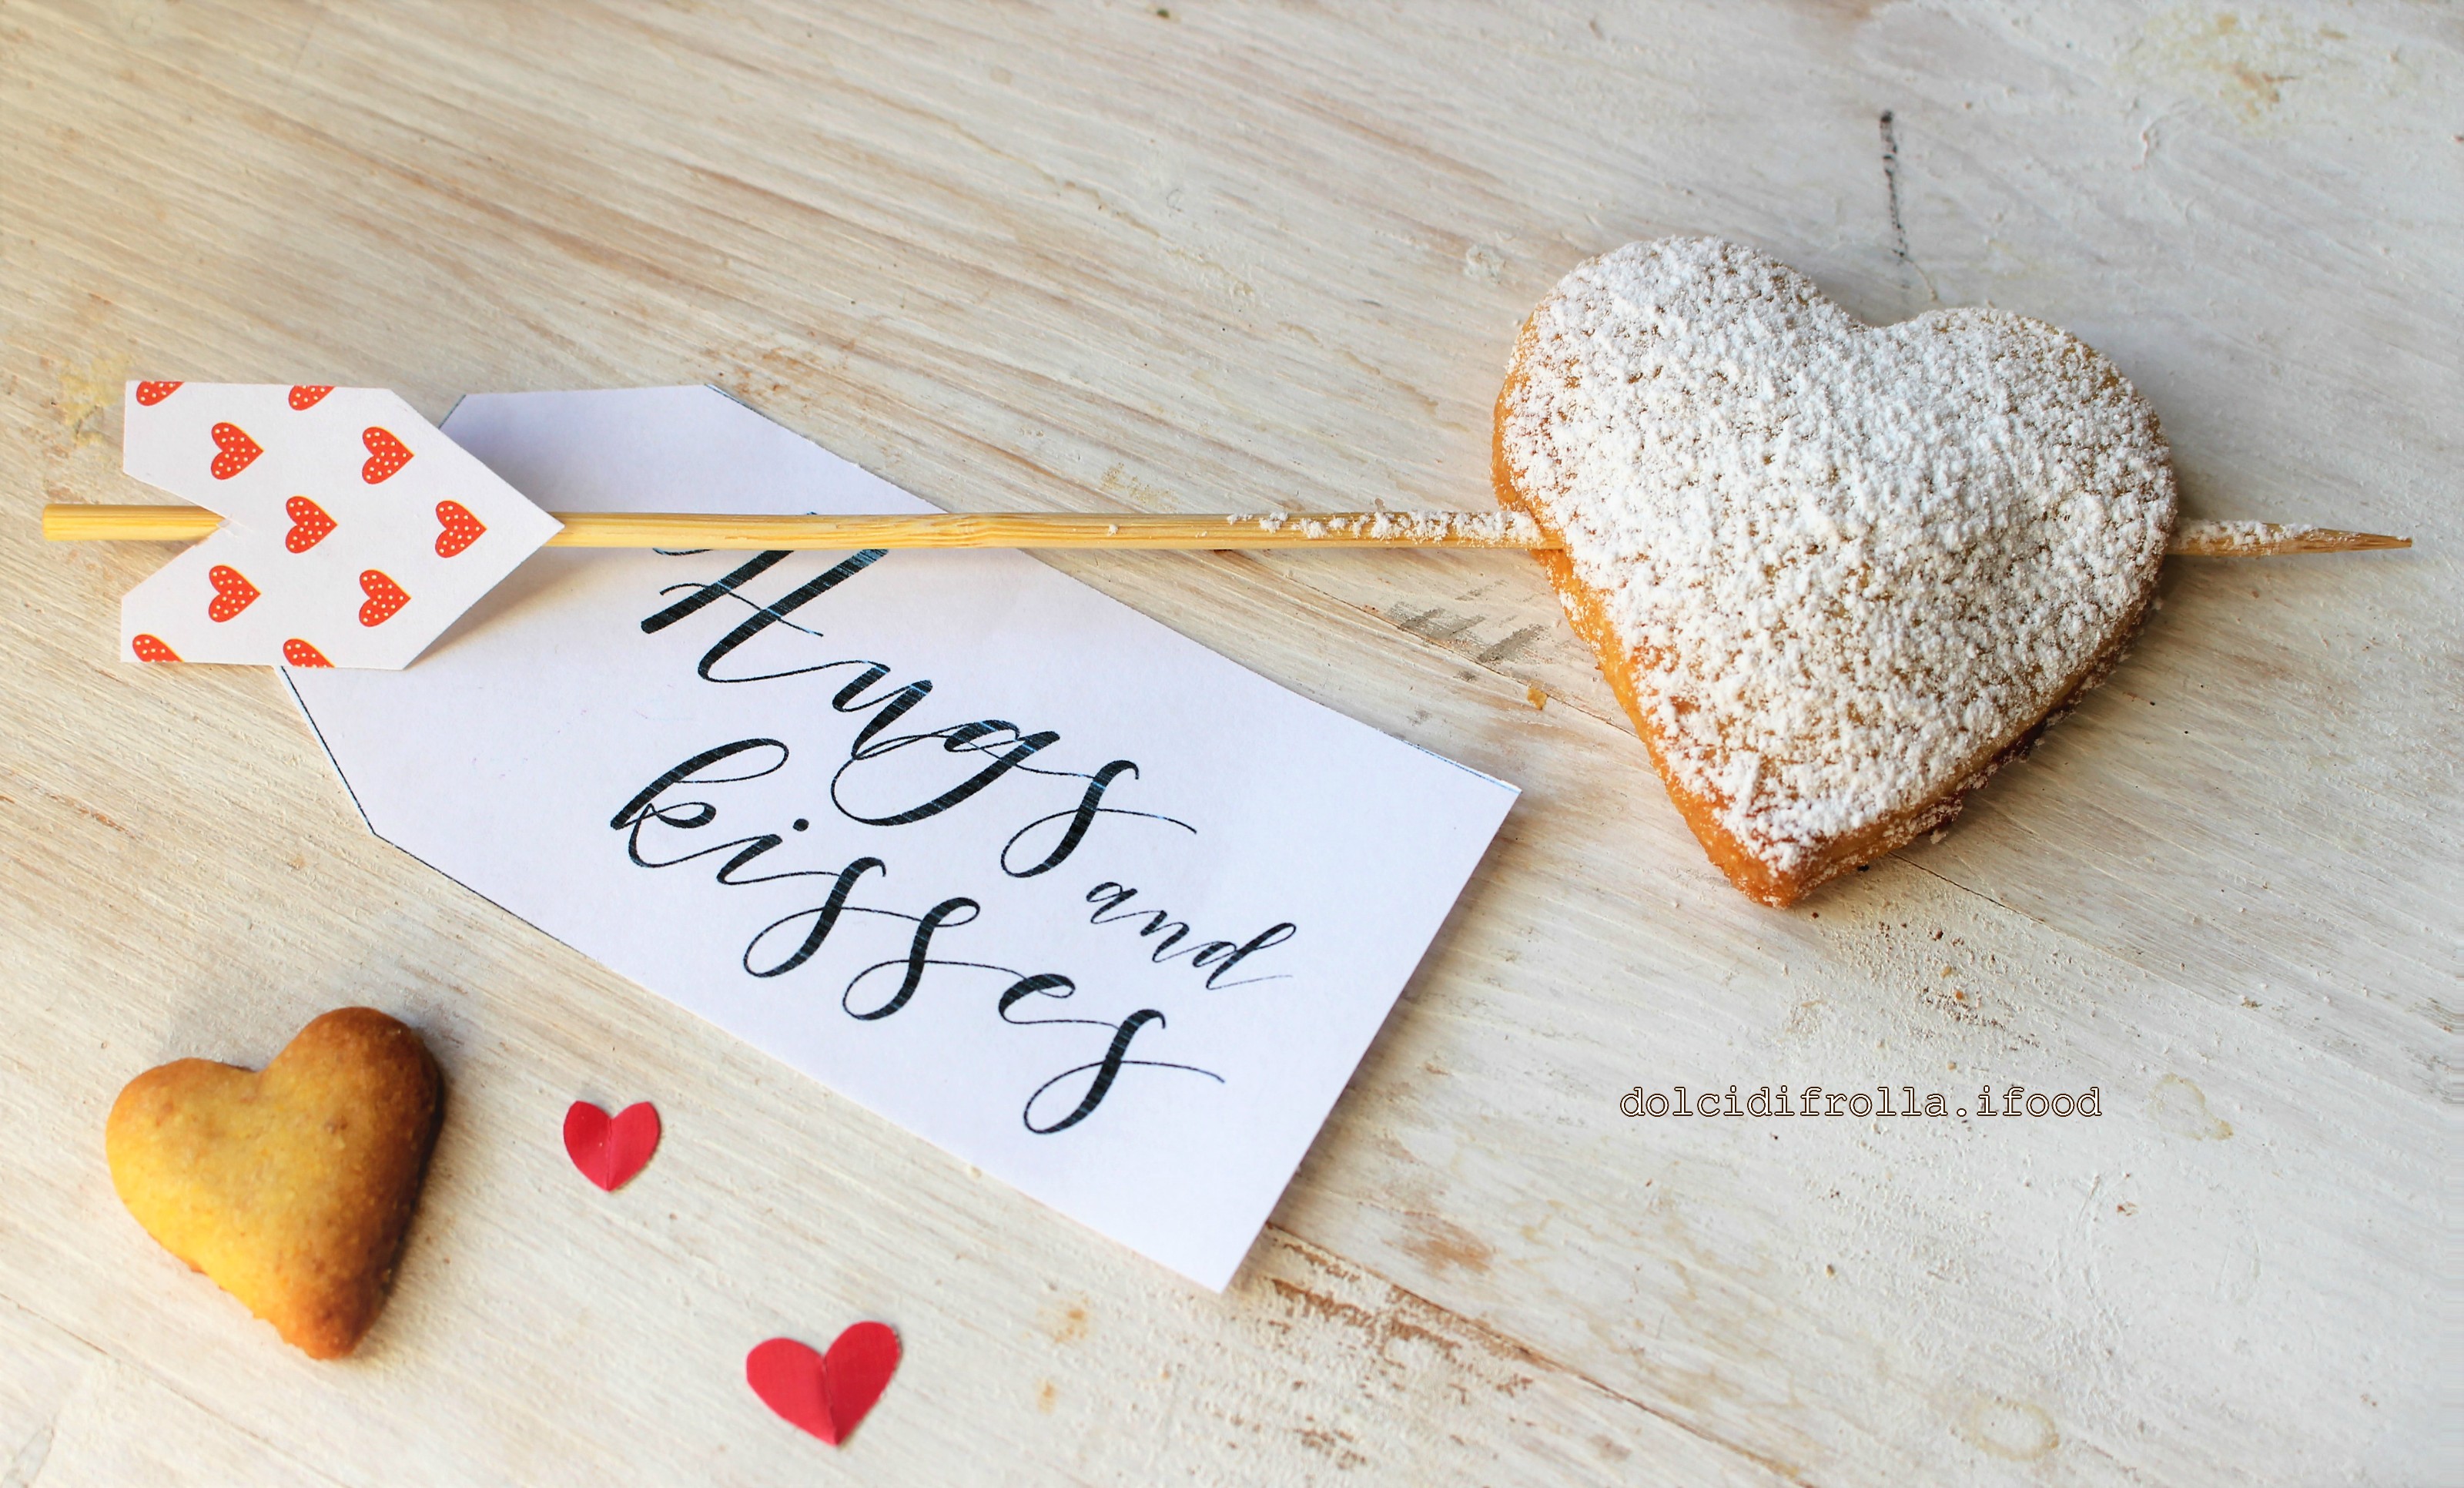 Hugs
and
kisses
dolcidifrolla.ifood